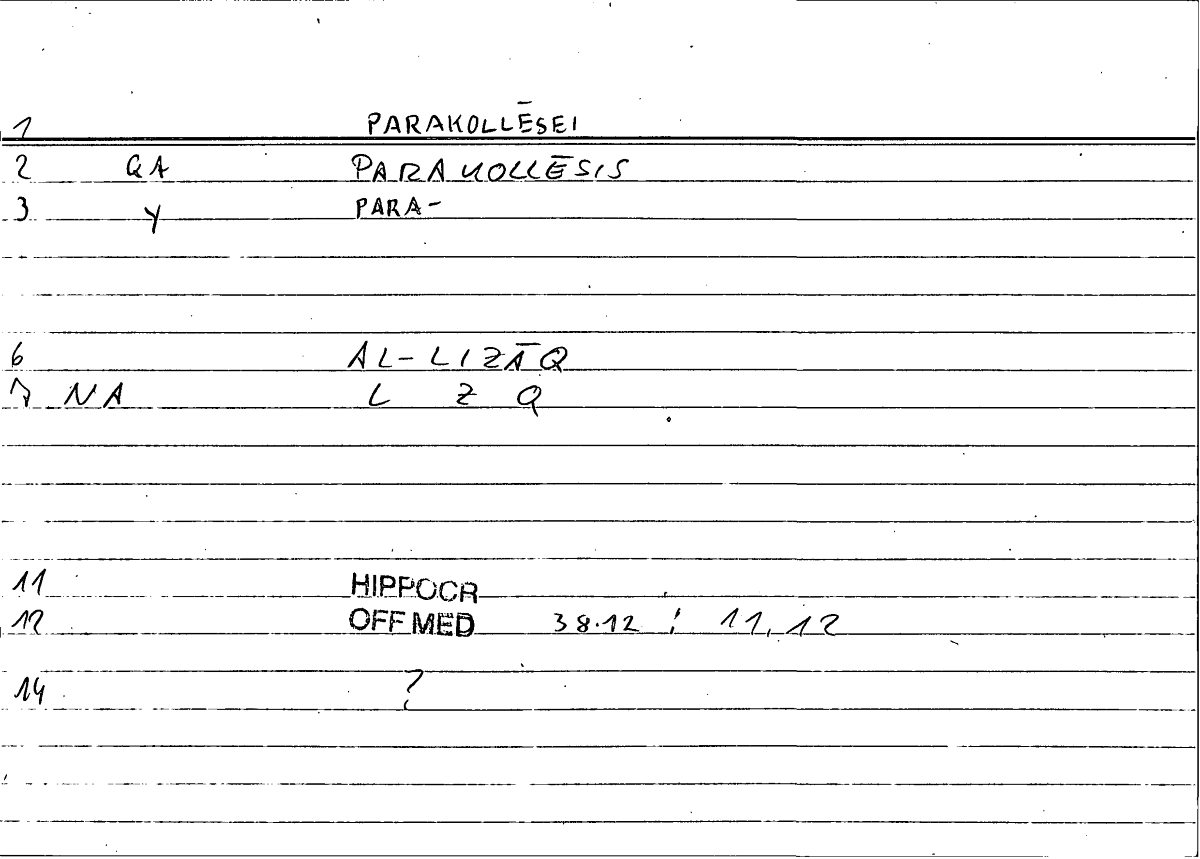 1 PARAKOLLĒSEI
2 QA PARAKOLLĒSIS
3 Y PARA-
6 AL-LIZĀQ
7 NA L Z Q
11 HIPPOCR
12 OFF MED 38.12 ; 11,12
14 ?